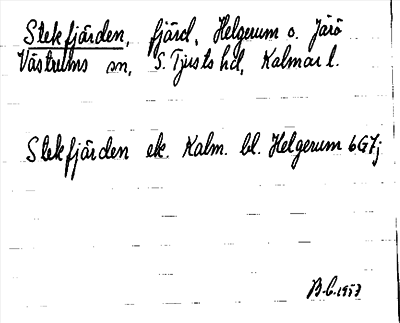 Stekfjärden, fjärd, Helgerum o. Järö
Västrums sn, S. Tjusts hd, Kalmar l.
Stekfjärden ek. Kalm. bl. Helgerum 6G7j
B-b. 1957